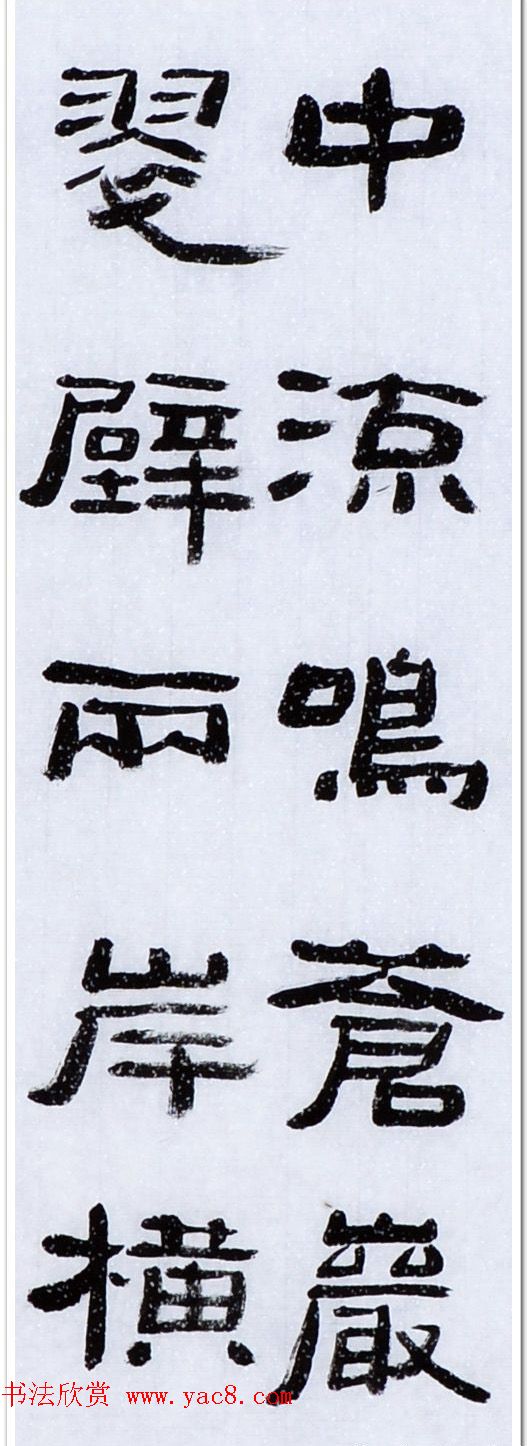 中涼鳴蒼巖
翠壁兩岸橫
书法欣赏 www.yac8.com